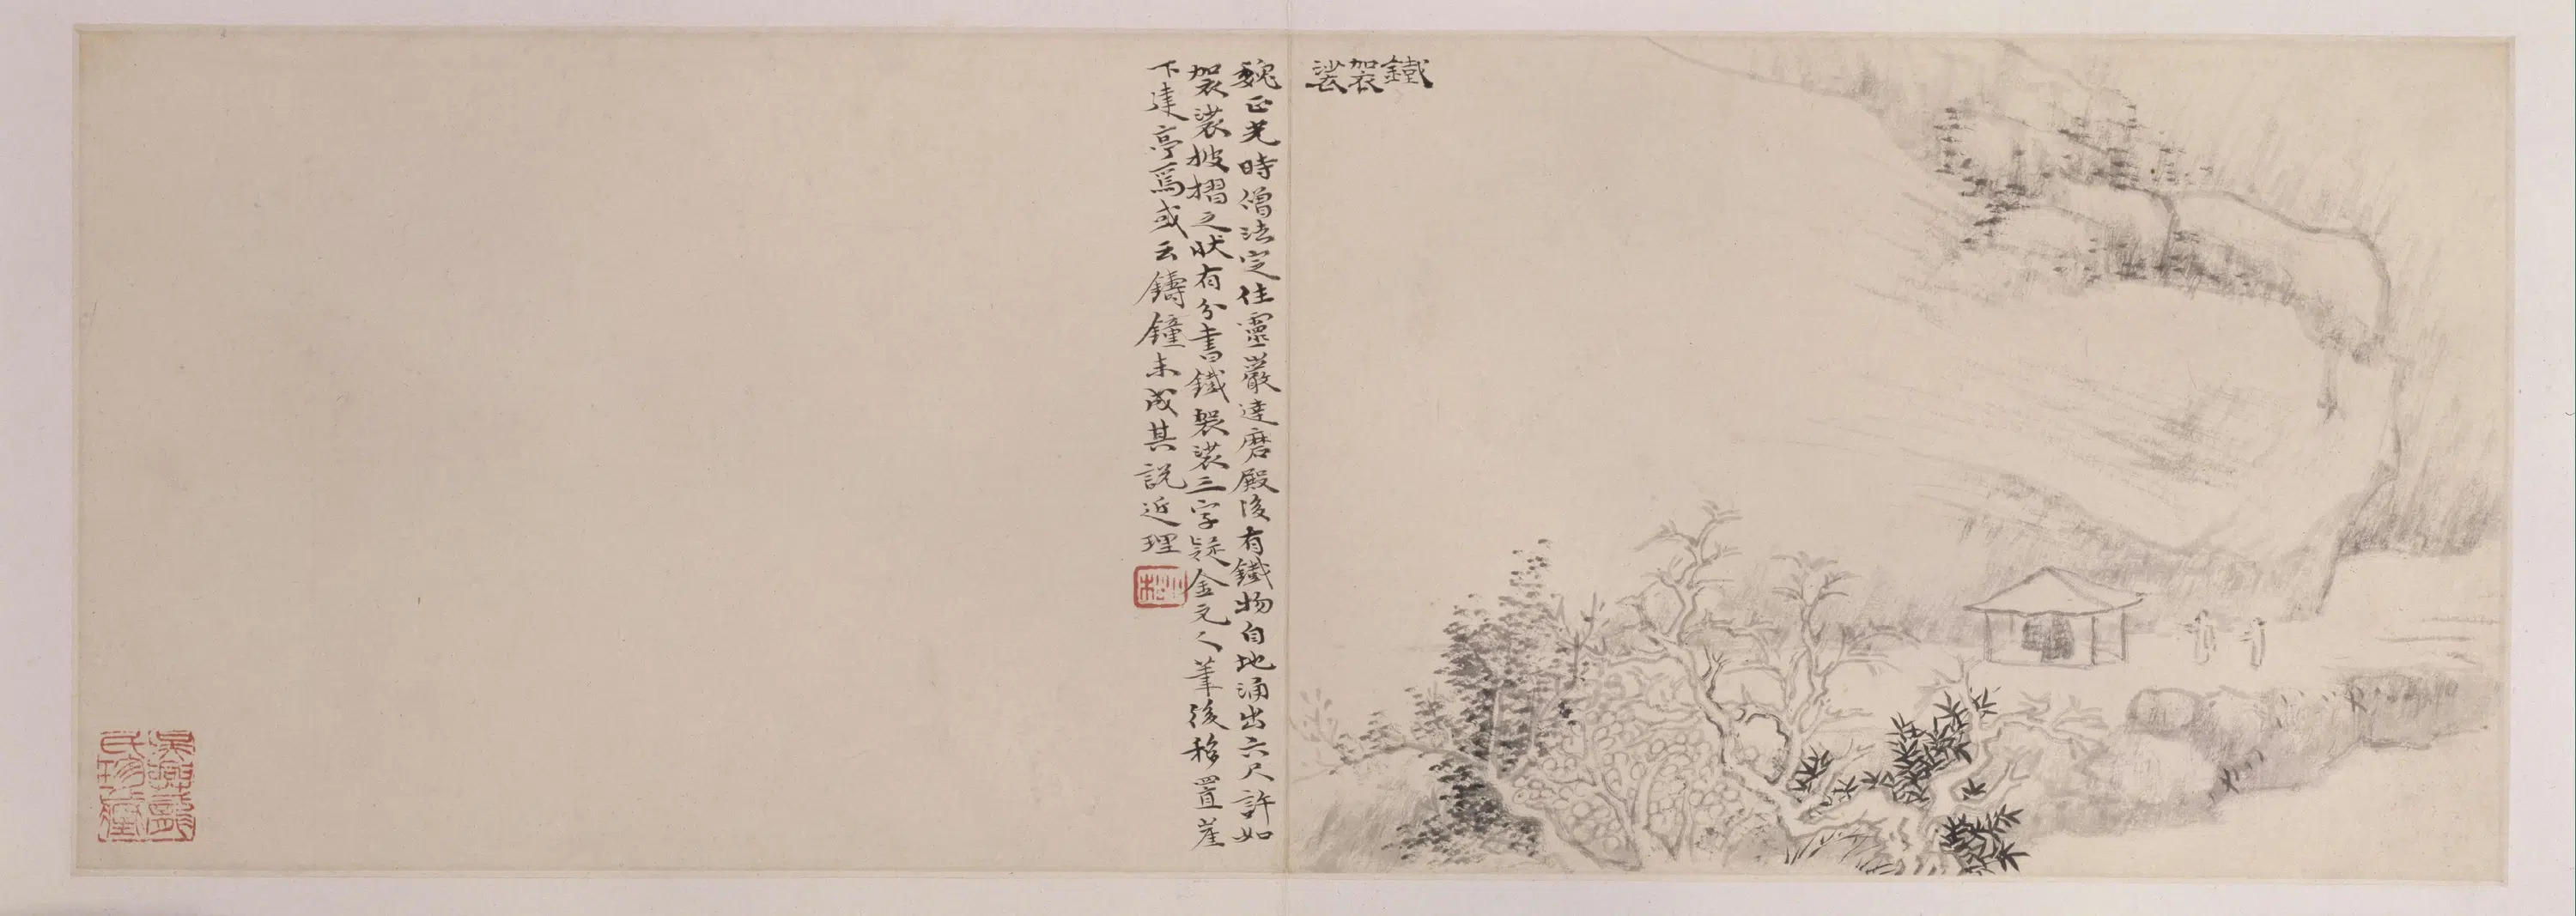 鐵袈裟
魏正光時僧法定住靈巖達磨殿後有鐵物自地涌出六尺許如
袈裟披摺之狀有分書鐵袈裟三字疑金元人筆後移置崖
下建亭焉或云鑄鐘未成其說近理
小松